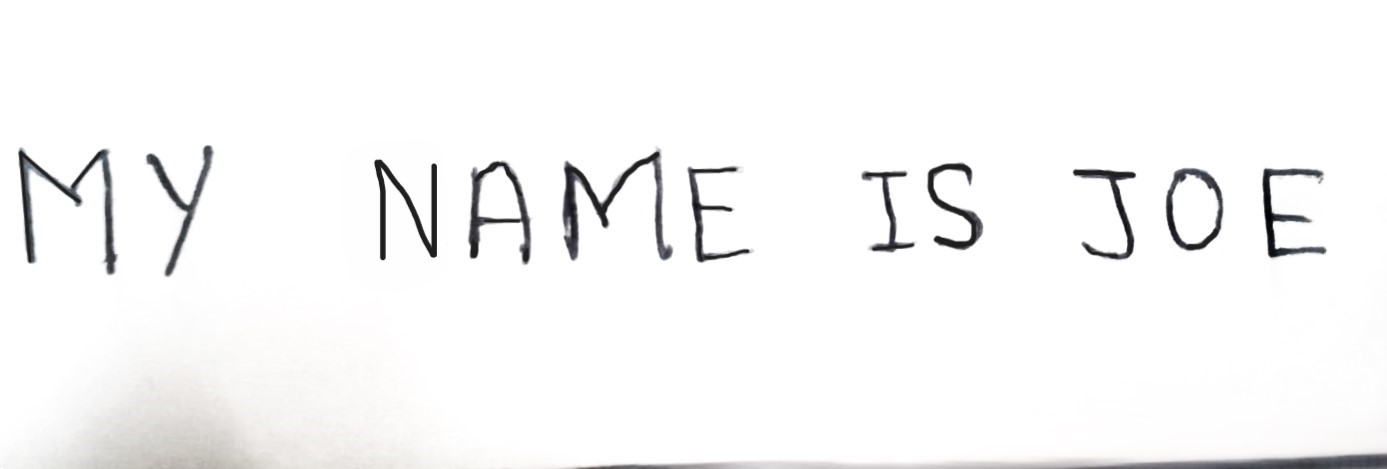 MY NAME IS JOE